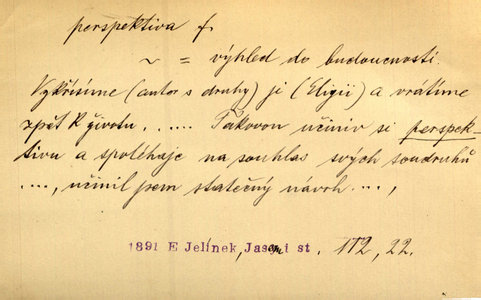 perspektiva f.
~ = výhled do budoucnosti.
Vykřísíme (autor s druhy) ji (Eligii) a vrátíme
zpět k životu. ..... Takovou učiniv si perspek-
tivu a spoléhaje na souhlas svých soudruhů
...., učinil jsem statečný návrh ...,
1891 E Jelínek, Jasem i st. 112, 22.